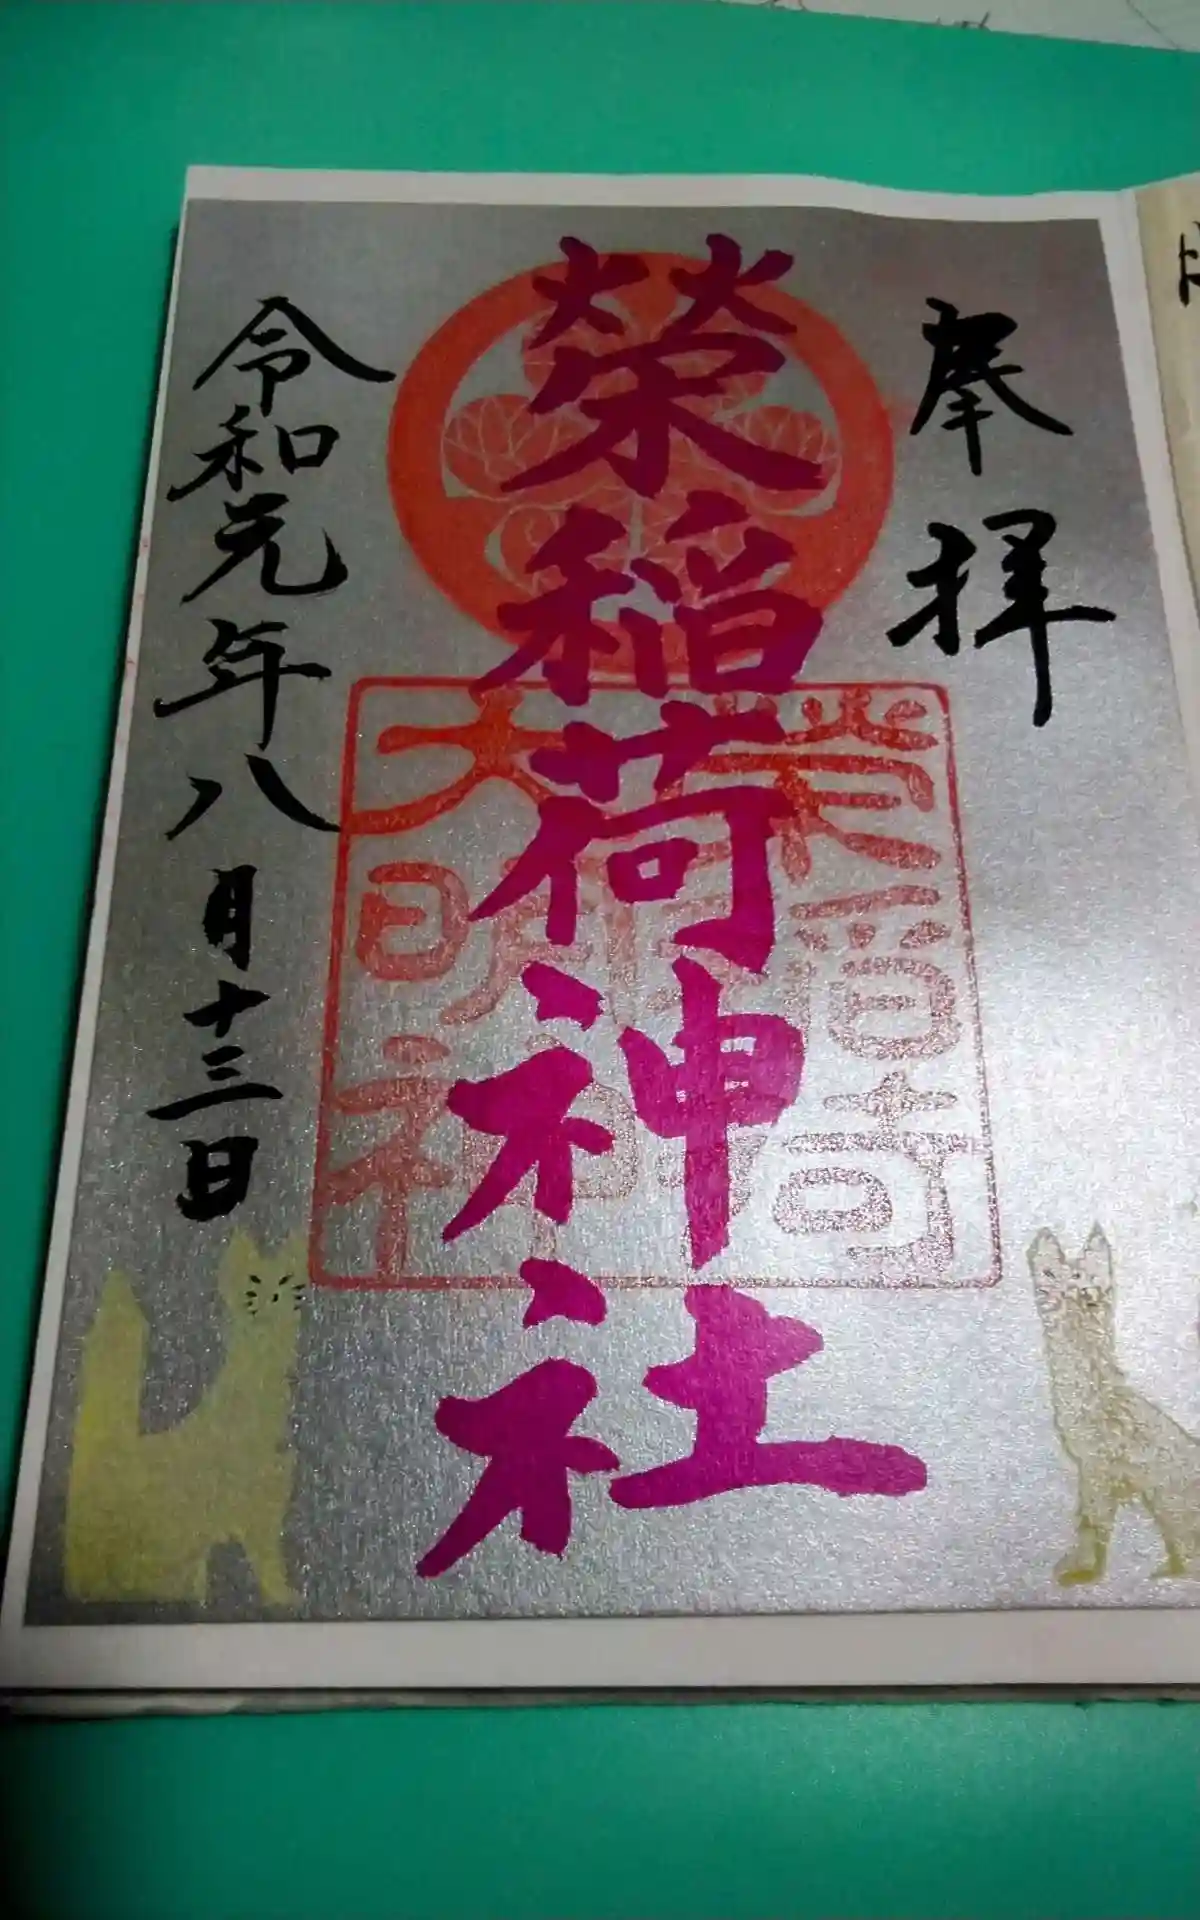 奉拝
榮稲荷神社
令和元年八月十三日
大明神社